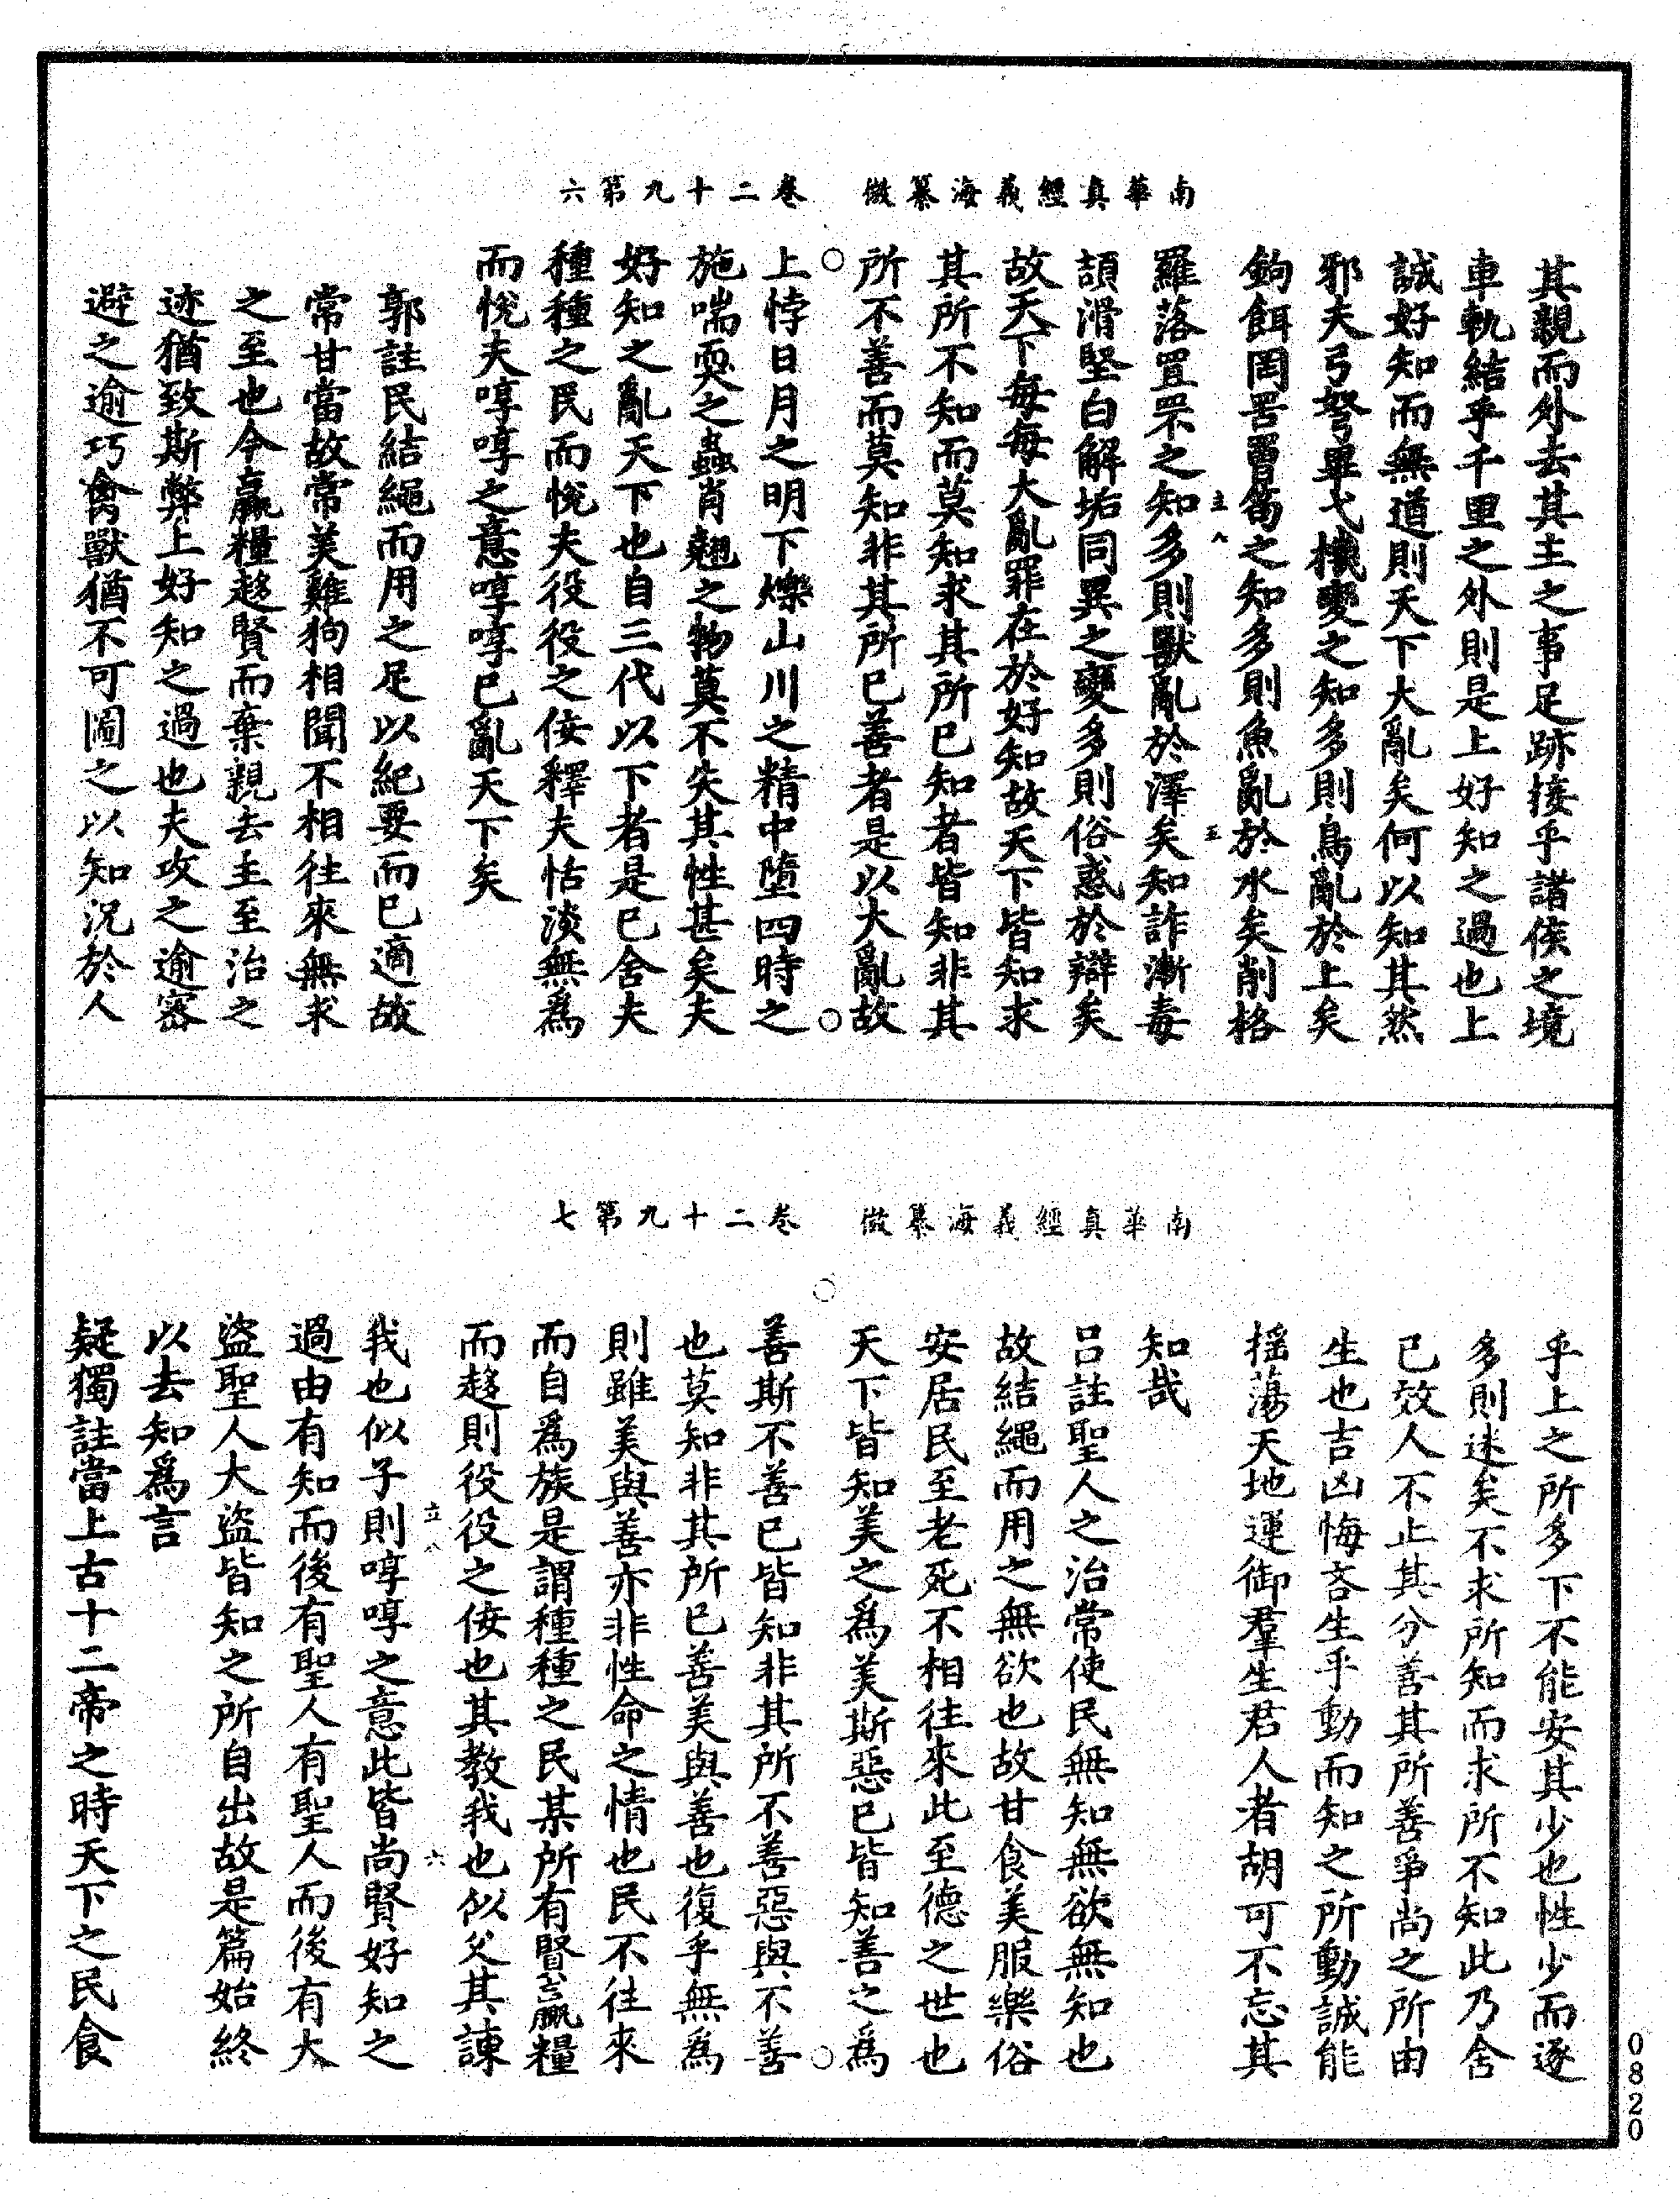 南華真經義海纂微　卷二十九第六
其親而外去其主之事足跡接乎諸侯之境
車軌結乎千里之外則是上好知之過也上
誠好知而無道則天下大亂矣何以知其然
邪夫弓弩畢弋機變之知多則鳥亂於上矣
鉤餌罔罟罾笱之知多則魚亂於水矣削格
羅落罝罘之知多則獸亂於澤矣知詐漸毒
頡滑堅白解垢同異之變多則俗惑於辯矣
故天下每每大亂罪在於好知故天下皆知求
其所不知而莫知求其所已知者皆知非其
所不善而莫知非其所已善者是以大亂故
上悖日月之明下爍山川之精中墮四時之
施喘耎之蟲肖翹之物莫不失其性甚矣夫
好知之亂天下也自三代以下者是已舍夫
種種之民而悅夫役役之佞釋夫恬淡無為
而悅夫啍啍之意啍啍已亂天下矣
郭註民結繩而用之足以紀要而已適故
常甘當故常美雞狗相聞不相往來無求
之至也今贏糧趍賢而棄親去主至治之
迹猶致斯弊上好知之過也夫攻之逾密
避之逾巧禽獸猶不可圖之以知況於人
立八
五
南華真經義海纂微　卷二十九第七
乎上之所多下不能安其少也性少而逐
多則迷矣不求所知而求所不知此乃舍
已效人不止其分善其所善爭尚之所由
生也吉凶悔吝生乎動而知之所動誠能
揺蕩天地運御羣生君人者胡可不忘其
知哉
呂註聖人之治常使民無知無欲無知也
故結繩而用之無欲也故甘食美服樂俗
安居民至老死不相往來此至德之世也
天下皆知美之為美斯惡已皆知善之為
善斯不善已皆知非其所不善惡與不善
也莫知非其所已善美與善也復乎無為
則雖美與善亦非性命之情也民不往來
而自為族是謂種種之民某所有賢者贏糧
而趍則役役之佞也其教我也似父其諫
我也似子則啍啍之意此皆尚賢好知之
過由有知而後有聖人有聖人而後有大
盜聖人大盜皆知之所自出故是篇始終
以去知為言
疑獨註當上古十二帝之時天下之民食
立八
六
0820